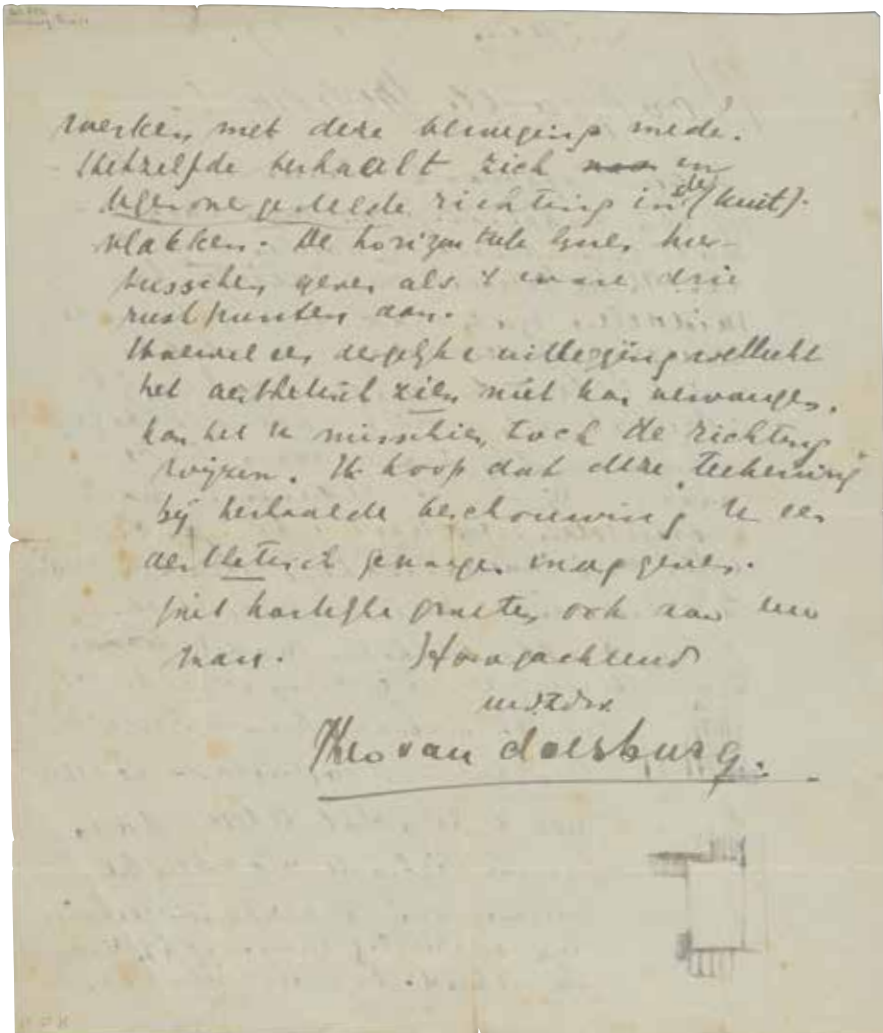 werken met deze beweging mede.
Hetzelfde herhaalt zich in
tegenovergestelde richting in de (kuit).
vlakken. De horizontale lijnen hier-
tusschen geven als 't ware drie
rustpunten aan.
Hoewel een dergelijke uitlegging wellicht
het aesthetisch zien niet kan vervangen,
kan het u misschien toch de richting
wijzen. Ik hoop dat deze teekening
bij herhaalde beschouwing u een
aesthetisch genoegen mag geven.
Met hartelijke groeten, ook aan uw
man. Hoogachtend
Theo van doesburg.